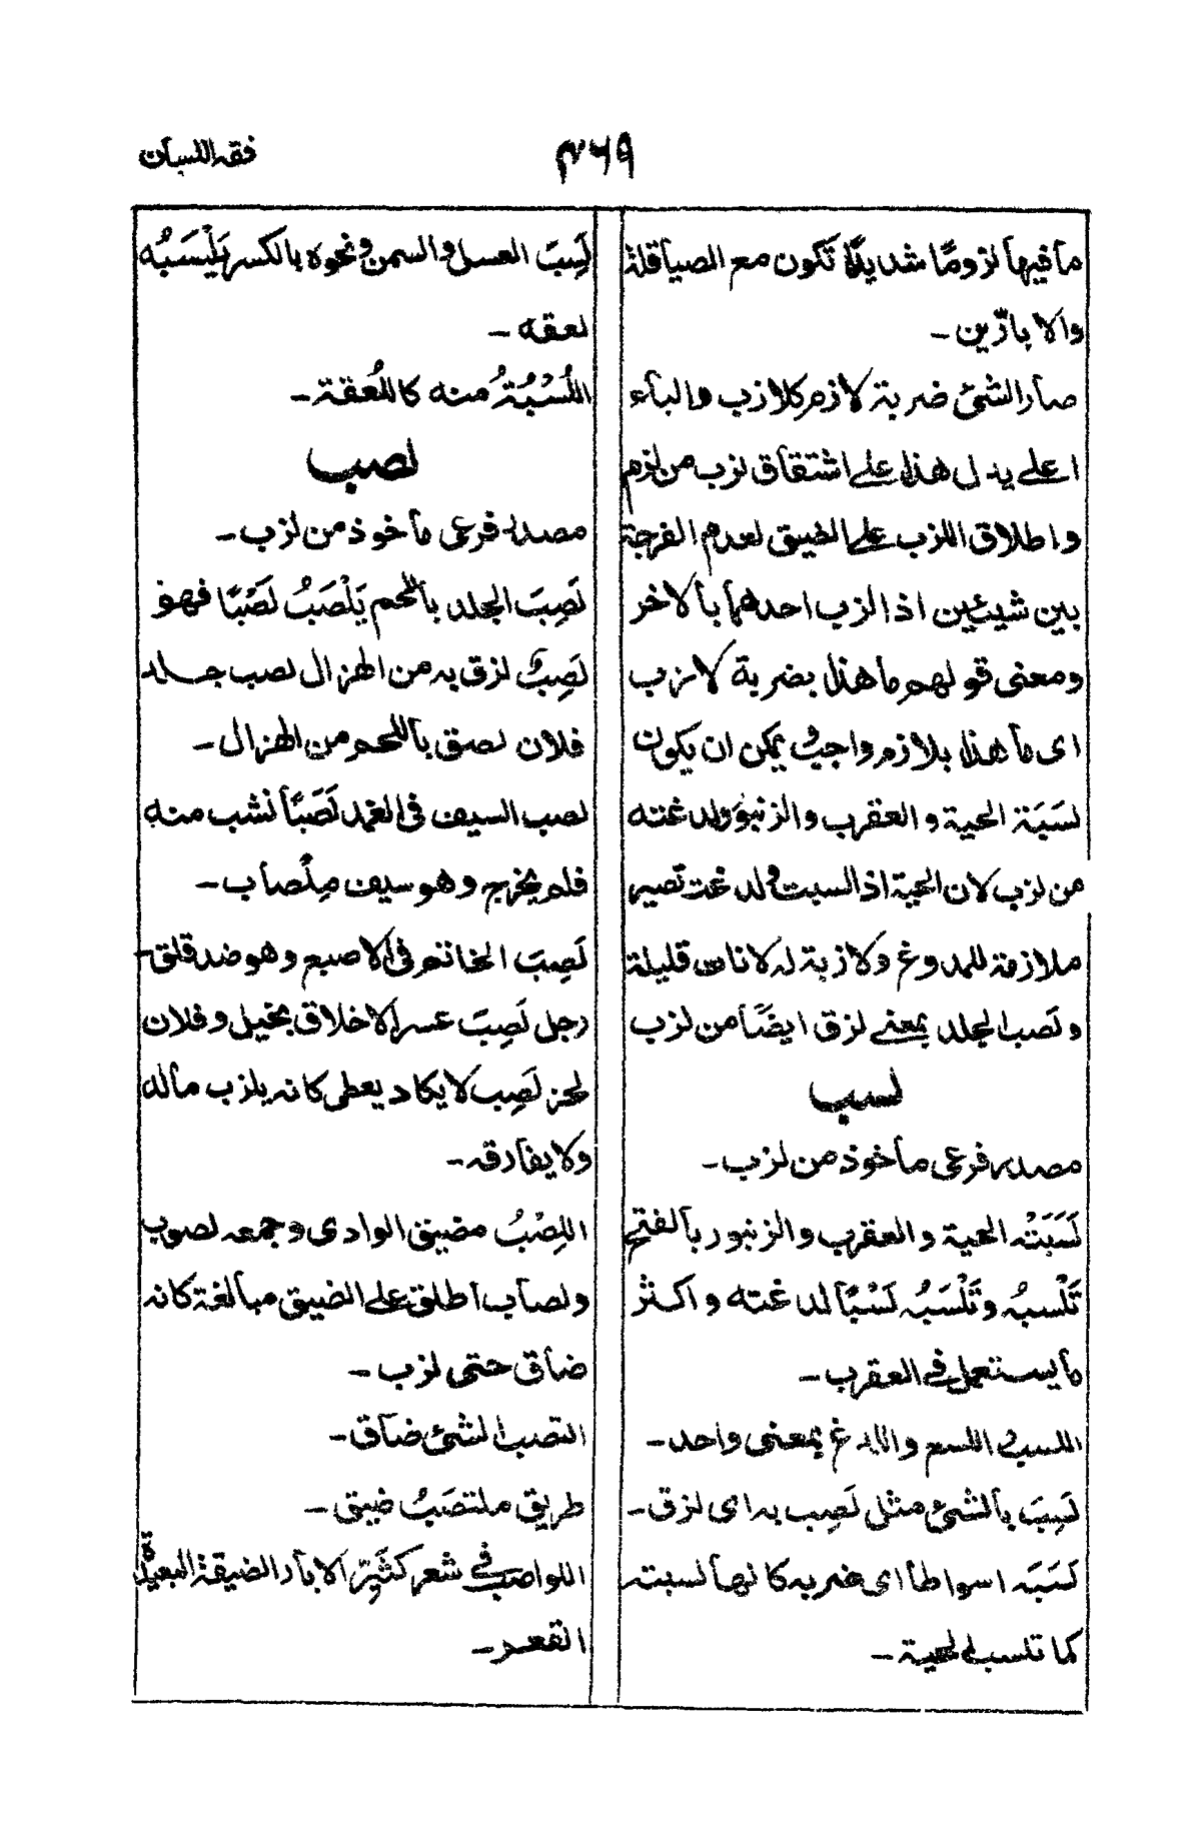 فقه اللسان
۳۶۹
ما فيها لزومًا شديدًا تكون مع الصياقلة
والابارّين ـ
صار الشئ ضربة لازم كلازب والباء
اعلى يدل هذا على اشتقاق لزب من لزم
واطلاق اللزب على الضيق لعدم الفرجة
بين شيئين اذا لزب احدهما بالآخر
ومعنى قولهم ما هذا بضربة لازب
اى ما هذا بلازم واجب و يمكن ان يكون
لسَبَتة الحية والعقرب والزنبور ولدغته
من لزب لان الحية اذا لسبت و لدغت تصير
ملازمة للمدوغ ولازبة له لاناس قليلة
ولصب الجلد بمعنى لزق ايضًا من لزب
لسب
مصدر فرعى ماخوذ من لزب ـ
لَسَبَتْه الحية والعقرب والزنبور بالفتح
تَلْسِبُه وتَلْسَبُه لَسْبًا لدغته واكثر
ما يستعمل فى العقرب ـ
اللسب و اللسع واللدغ بمعنى واحد ـ
لَسِبَ بالشئ مثل لَصِب به اى لزق ـ
لسَبَه اسواطا اى ضربه كانها لسبته
كما تلسب الحية ـ
لَسِبَ العسل والسمن و نحوه بالكسر يَلْسَبُه
لعقه ـ
اللُسْبُةُ منه كاللُعقة ـ
لصب
مصدر فرعى ماخوذ من لزب ـ
لَصِبَ الجلد باللحم يَلْصَبُ لَصْبًا فهو
لَصِبٌ لزق به من الهزال لصب جلد
فلان لصق باللحم من الهزال ـ
لصب السيف فى الغمد لَصَبًا نشب منه
فلم يخرج وهو سيف مِلْصاب ـ
لَصِبَ الخاتم فى الاصبع وهو ضد قلق ـ
رجل لَصِبَ عسر الاخلاق بخيل وفلان
لحز لَصِب لا يكاد يعطى كانه يلزب ماله
ولا يفارقه ـ
اللِصْبُ مضيق الوادى وجمعه لصوب
ولصاب اطلق على الضيق مبالغة كانه
ضاق حتى لزب ـ
التصب الشئ ضاق ـ
طريق ملتصَبُ ضيق ـ
اللواصب فى شعر كثيِّر الابار الضيقة البعيدة
القعر ـ